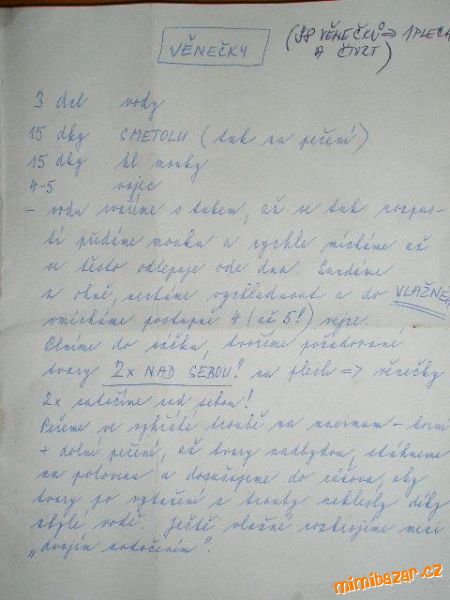 VĚNEČKY
(38 VĚNEČKŮ => 1PLECH
A ČTVRT)
3 dcl vody
15 dkg SMETOLU (tuk na pečení)
15 dkg hl. mouky
4-5 vajec
- vodu svaříme s tukem, až se tuk rozpus-
tí přidáme mouku a rychle mícháme až
se těsto odlepuje ode dna. Sundáme
z ohně, necháme vychladnout a do VLAŽNÉ
vmícháme postupně 4 (až 5!) vejce.
Plníme do sáčku, tvoříme požadované
tvary 2x NAD SEBOU! na plech => věnečky
2x zatočíme nad sebou!
Pečeme ve vyhřáté troubě na maximum - horní
+ dolní pečení, až tvary nadbydou, stáhneme
na polovinu a dosušujeme do růžova, aby
tvary po vytažení z trouby neklesly díky
zbylé vodě. Ještě vlažné rozkrojíme mezi
„dvojím zatočením".
mimibazar.cz